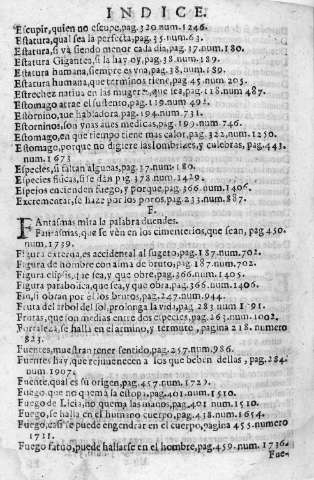 INDICE.
Escupir, quien no escupe, pag. 320. num. 1246.
Estatura, qual sea la perfecta, pag. 35. num. 63.
Estatura, si và siendo menor cada dia, pag. 37. num. 180.
Estatura Gigantes, si la hay, oy, pag. 38. num. 189.
Estatura humana, siempre es vna, pag. 38. num. 189.
Estatura humana, que terminos tiene, pag. 45. num. 205.
Estrechez nativa en las mugeres, que sea, pag. 118. num. 487.
Estomago atrae el sustento, pag. 119. num 492.
Estornino, fue hablador, pag. 194. num. 731.
Estorninos, son vnas aues medicas, pag. 199. num. 746.
Estomago, en que tiempo tiene mas calor, pag. 322. num. 1250.
Estomago, porque no digiere las lombrizes, y culebras, pag. 443.
num. 1673
Especies, si faltan algunas, pag. 37. num. 180.
Especies fisicas, si se dàn pag 378. num. 1429.
Espejos encienden fuego, y porque, pag. 366. num. 1406.
Excrementar, se haze por los poros, pag. 233. num. 887.
F.
Fantasmas mira la palabra duendes.
Fantasmas, que se vèn en los cimenterios, que sean, pag 450.
num. 1739.
Figura externa, es accidental al sugeto, pag. 187. num. 702.
Figura de hombre con alma de bruto, pag. 187. num. 702.
Figura elipsis, que sea, y que obre, pag. 366. num. 1405.
Figura parabolica, que sea, y que obra, pag. 366. num. 1406.
Fin, si obran por èl los brutos, pag. 247. num. 944.
Fruta del arbol del sol, prolonga la vida, pag. 283 num 1 91.
Frutas, que son medias entre dos especies, pag. 263. num. 1002.
Fortaleza, se halla en el armino, y termute, pagina 218. numero
823.
Fuentes, muestran tener sentido, pag. 257. num. 986.
Fuentes hay que rejuuenecen à los que beben dellas, pag. 284.
num 1907.
Fuente, qual es su origen, pag. 457. num. 1729.
Fuego que no quema la estopa, pag. 401. num. 1510.
Fuego de Licia, no quema las manos, pag. 401 num. 1510.
Fuego, se halla en el humano cuerpo, pag. 438. num. 1654.
Fuego, casi se puede engendrar en el cuerpo, pagina 455. numero
1711.
Fuego fatuo, puede hallarse en el hombre, pag. 459. num. 1736.
Fue-